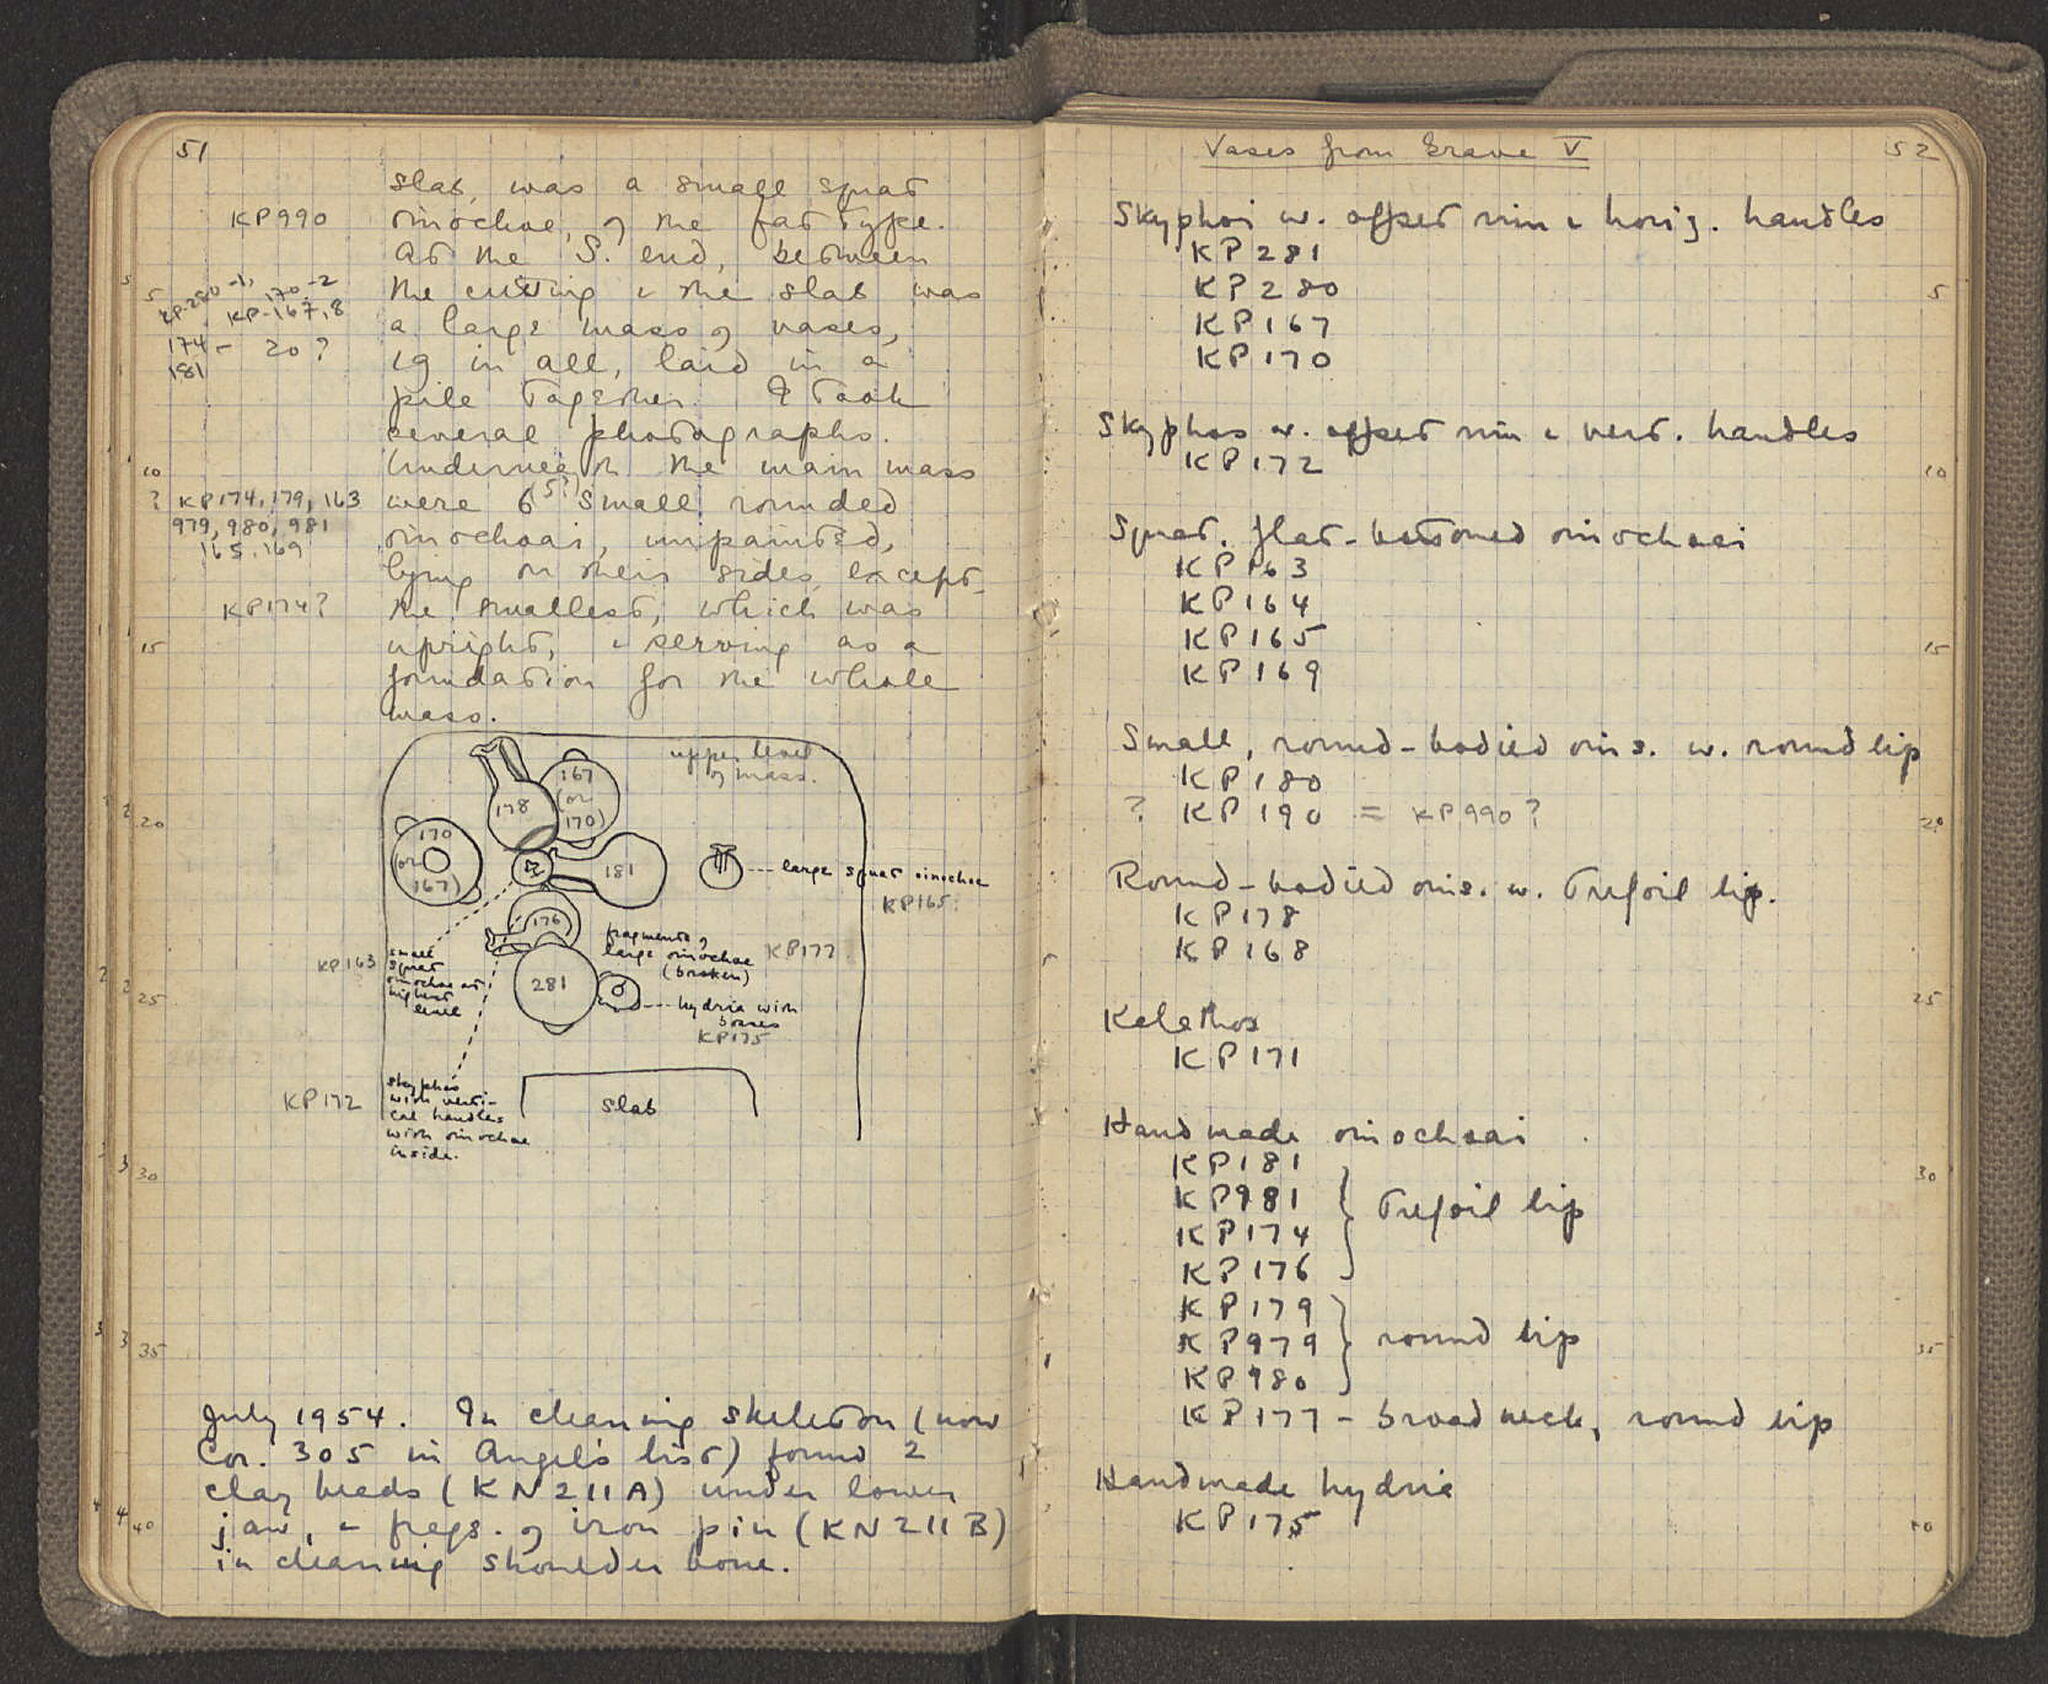 51
slab, was a small squat
KP990 oinochoe, of the fat type.
At the S. end, between
KP-280-1, 170-2 the cutting & the slab was
KP-167,8 a large mass of vases,
174- 20? 19 in all, laid in a
181 pile together. I took
several photographs.
Underneath the main mass
? KP174, 179, 163 were 6 (5?) small rounded
979, 980, 981 oinochoai, unpainted,
165, 169 lying on their sides except
KP174? the smallest, which was
upright, & serving as a
foundation for the whole
mass.
upper level
of mass.
167
(or
170)
178
170
(or
167)
181
large squat oinochoe
KP165
176
fragments of
large oinochoe
(broken)
KP177
KP163
small
squat
oinochoe at
highest
level
281
hydria with
bosses
KP175
KP172
skyphos
with verti-
cal handles
with oinochoe
inside.
slab
5
10
15
20
25
30
35
40
July 1954. In cleaning skeleton (now
Cor. 305 in Angel's list) found 2
clay beads (KN211A) under lower
jaw, & frags. of iron pin (KN211B)
in cleaning shoulder bone.
Vases from Grave V
52
Skyphoi w. offset rim & horiz. handles
KP281
KP280
KP167
KP170
Skyphos w. offset rim & vert. handles
KP172
Squat, flat-bottomed oinochoai
KP163
KP164
KP165
KP169
Small, round-bodied oins. w. round lip
KP180
? KP190 = KP990?
Round-bodied oins. w. trefoil lip.
KP178
KP168
Kalathos
KP171
Handmade oinochoai
KP181
KP981 } trefoil lip
KP174
KP176
KP179
KP979 } round lip
KP980
KP177 - broad neck, round lip
Handmade hydria
KP175
5
10
15
20
25
30
35
40